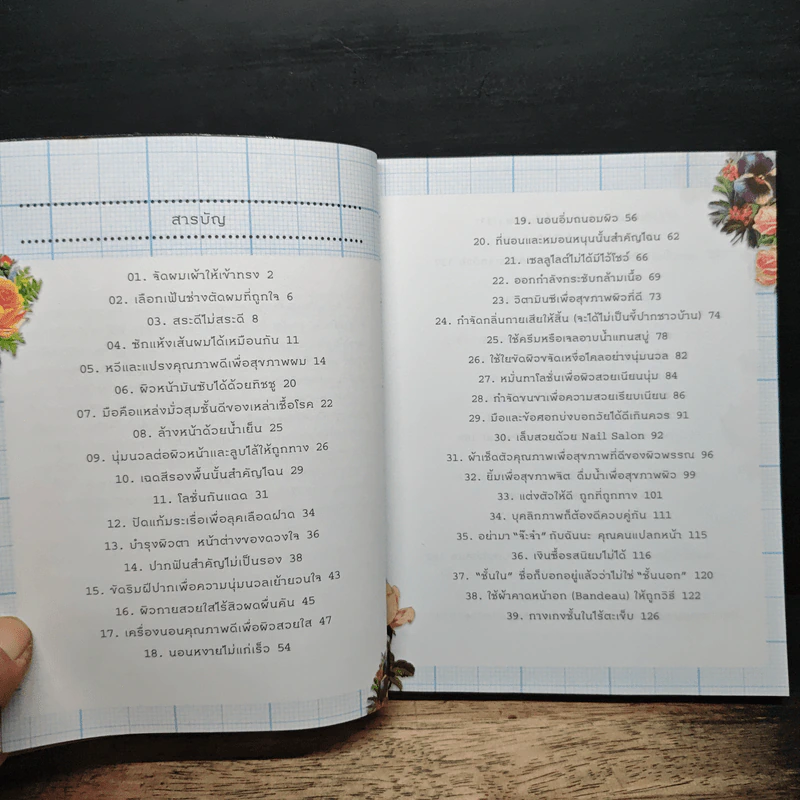 สารบัญ
01. จัดผมเผ้าให้เข้าทรง 2
02. เลือกเฟ้นช่างตัดผมที่ถูกใจ 6
03. สระดีไม่สระดี 8
04. ซักแห้งเส้นผมได้เหมือนกัน 11
05. หวีและแปรงคุณภาพดีเพื่อสุขภาพผม 14
06. ผิวหน้ามันซับได้ด้วยทิชชู 20
07. มือคือแหล่งมั่วสุมชั้นดีของเหล่าเชื้อโรค 22
08. ล้างหน้าด้วยน้ำเย็น 25
09. นุ่มนวลต่อผิวหน้าและลูบไล้ให้ถูกทาง 26
10. เฉดสีรองพื้นนั้นสำคัญไฉน 29
11. โลชั่นกันแดด 31
12. ปัดแก้มระเรื่อเพื่อลุคเลือดฝาด 34
13. บำรุงผิวตา หน้าต่างของดวงใจ 36
14. ปากฟันสำคัญไม่เป็นรอง 38
15. ขัดริมฝีปากเพื่อความนุ่มนวลเย้ายวนใจ 43
16. ผิวกายสวยใสไร้สิวผดผื่นคัน 45
17. เครื่องนอนคุณภาพดีเพื่อผิวสวยใส 47
18. นอนหงายไม่แก่เร็ว 54
19. นอนอิ่มถนอมผิว 56
20. ที่นอนและหมอนหนุนนั้นสำคัญไฉน 62
21. เซลลูไลต์ไม่ได้มีไว้โชว์ 66
22. ออกกำลังกระชับกล้ามเนื้อ 69
23. วิตามินซีเพื่อสุขภาพผิวที่ดี 73
24. กำจัดกลิ่นกายเสียให้สิ้น (จะได้ไม่เป็นขี้ปากชาวบ้าน) 74
25. ใช้ครีมหรือเจลอาบน้ำแทนสบู่ 78
26. ใช้ใยขัดผิวขจัดเหงื่อไคลอย่างนุ่มนวล 82
27. หมั่นทาโลชั่นเพื่อผิวสวยเนียนนุ่ม 84
28. กำจัดขนขาเพื่อความสวยเรียบเนียน 86
29. มือและข้อศอกบ่งบอกวัยได้ดีเกินควร 91
30. เล็บสวยด้วย Nail Salon 92
31. ผ้าเช็ดตัวคุณภาพเพื่อสุขภาพที่ดีของผิวพรรณ 96
32. ยิ้มเพื่อสุขภาพจิต ดื่มน้ำเพื่อสุขภาพผิว 99
33. แต่งตัวให้ดี ถูกที่ถูกทาง 101
34. บุคลิกภาพก็ต้องดีควบคู่กัน 111
35. อย่ามา "จ๊ะจ๋า" กับฉันนะ คุณคนแปลกหน้า 115
36. เงินซื้อรสนิยมไม่ได้ 116
37. "ชั้นใน" ชื่อก็บอกอยู่แล้วว่าไม่ใช่ "ชั้นนอก" 120
38. ใช้ผ้าคาดหน้าอก (Bandeau) ให้ถูกวิธี 122
39. กางเกงชั้นในไร้ตะเข็บ 126